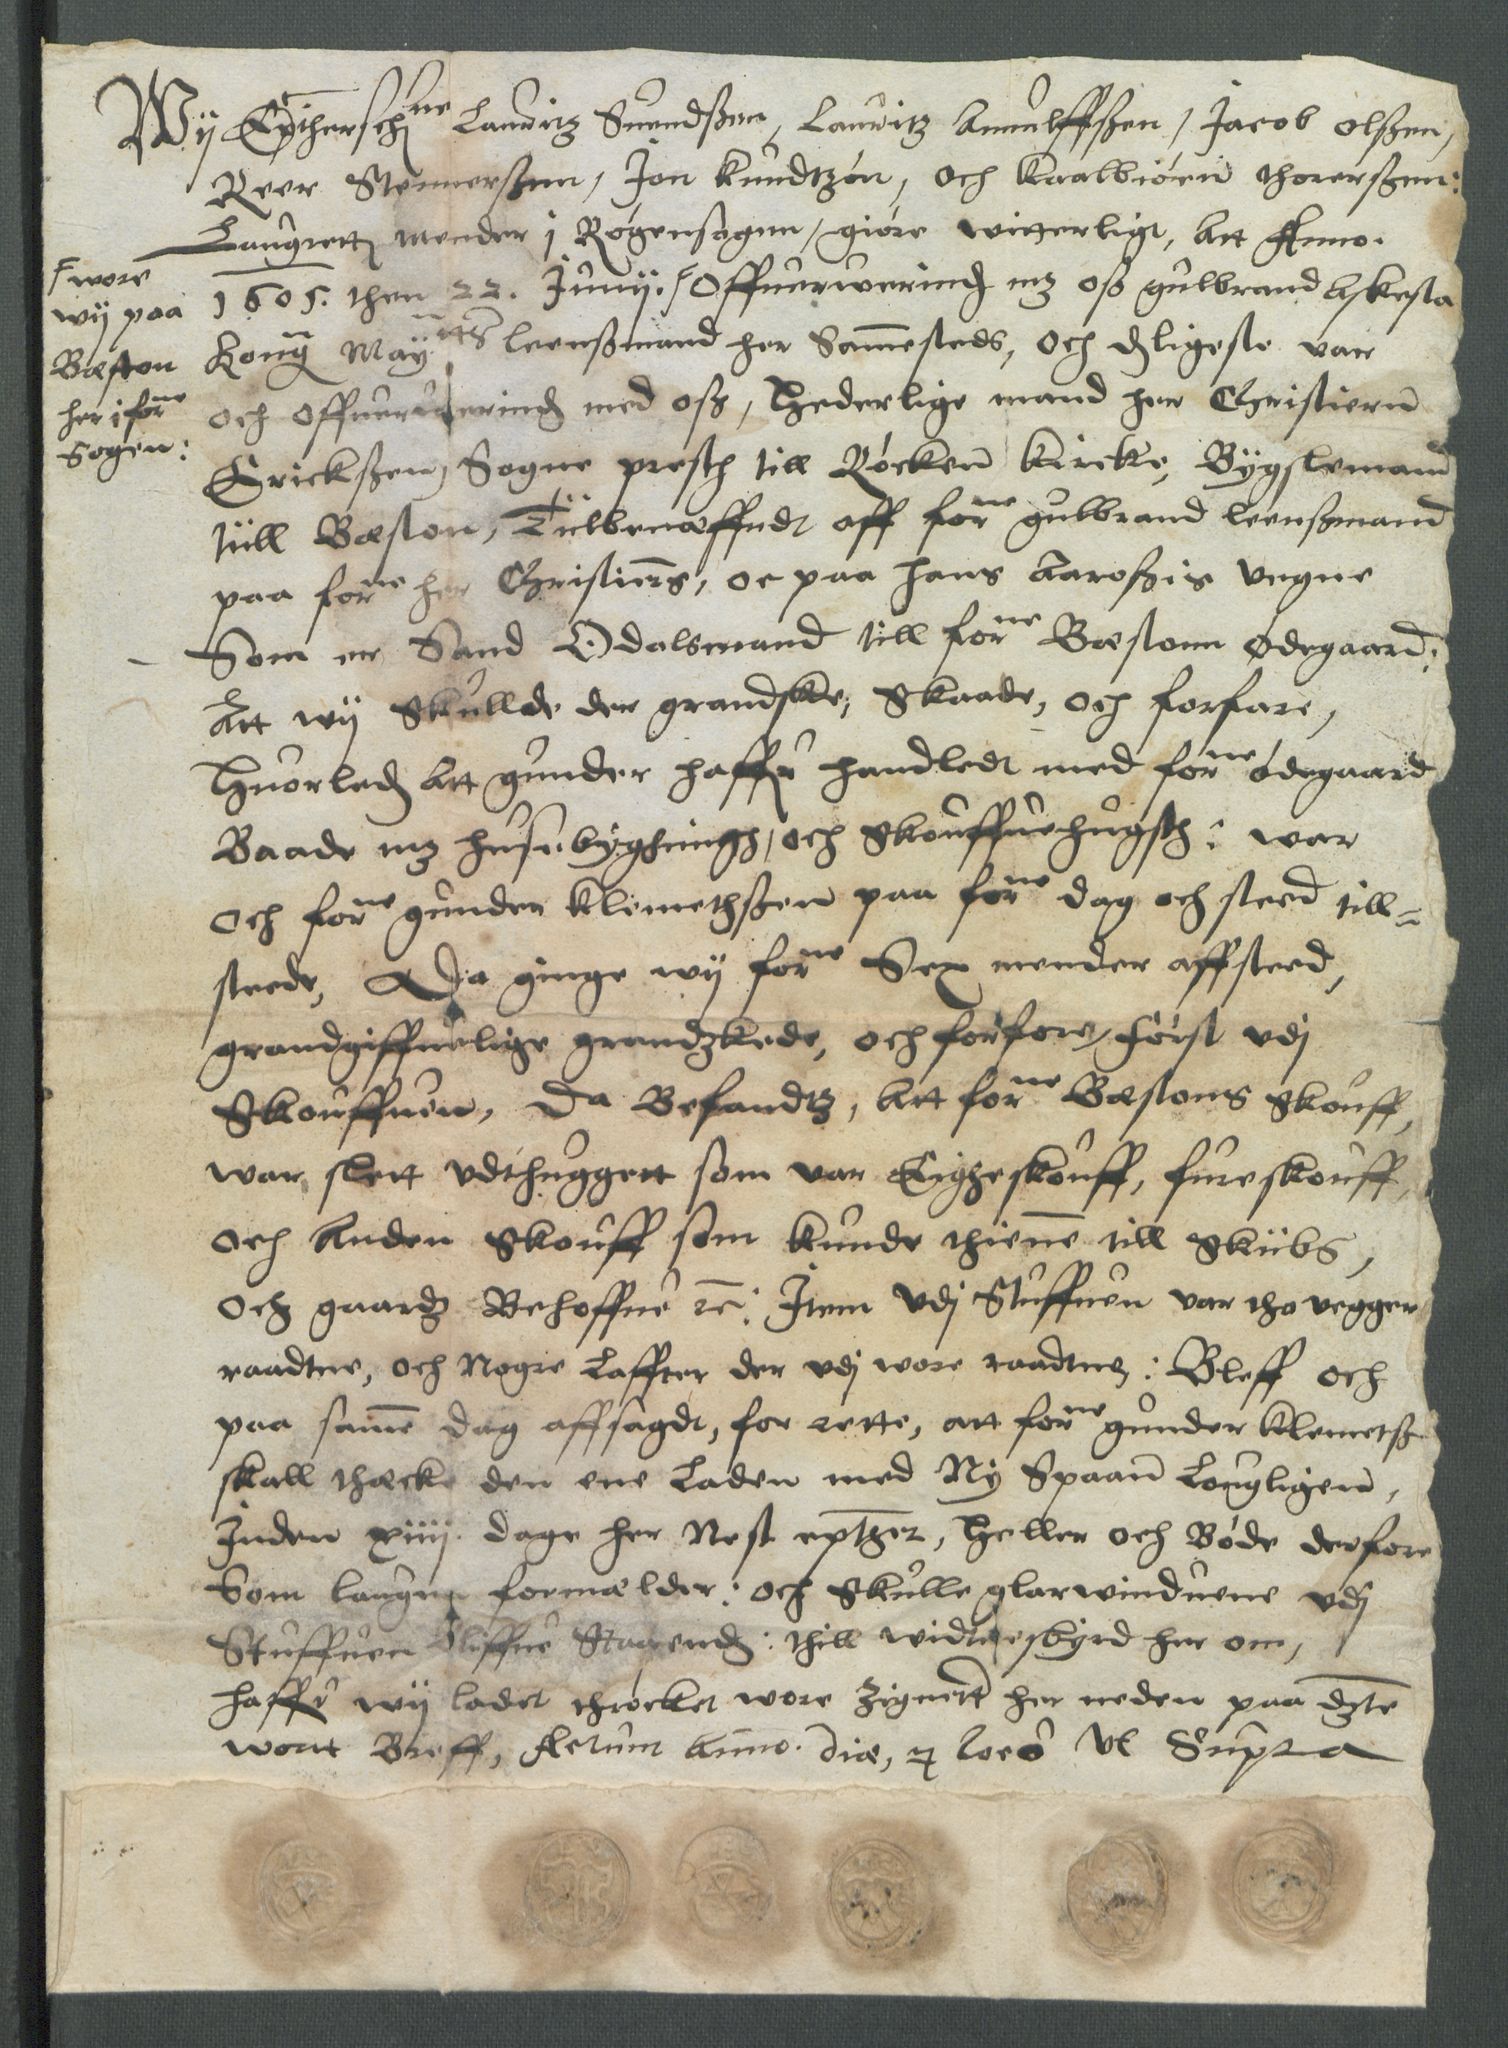 Wij Epthersch:ne Lauritz Suendßen, Lauritz Anulffßen, Jacob olßen,
Reer Stenerßen, Jon knudtzón, och kaalbiörn thorerßen:
Laugrett mender j Rógensogenn, gióre witterligt, Att Anno.
1605. then 22. Junij. Offueruerind mz oß gulbrand Askesta
wore
wij paa
Bøston
her i for:ne
Sogen:
Kong May:tts leenßmand her Sammesteds, och dligeste var
och offueruerind med oß, Hederlige mand her Christiern
Erickßen, Sogne presth till Röcken kircke, Bygslemand
till Bøston, Tilbeneffndt aff for:ne gulbrand leenßmand
paa for:ne her Christierns, oc paa hans Aaroßis vegne
Som er Sand Odalsmand till for:ne Bøstonn ódegaard:
Att wij Skullde der grandske, Skaade, och forfare,
Huorled Att gunder haffr handledt med for:ne ódegaard
Baade mz huse bygningh, och Skouffuehugsth: war
och for:ne gunder Klemethßen paa for:ne dag och steed till=
steede, Da ginge wij for:ne Sex mender affsteed,
grandgiffuelige grandzkede, och forfore, Först vdj
Skouffuen, Da Befandtz, Att for:ne Bøstons Skouff,
war slett vdthuggett som var Eigheskouff, fureskouff,
och Anden Skouff som kunde thiene till Skibs,
och gaardz Behoffue etc: Item vdj Stuffuen var tho vegger
raadtne, och Nogre Laffter der vdj wore raadtnez: Bleff och
paa samme dag affsagdt, for rette, att for:ne gunder Klemetß
skall thæcke den ene Laden med Ny Spaan Lougligen,
Inden xiiij. dage her Nest epther, Heller och Böde derfore
Som laugen formælder: och Skulle glarwinduene vdj
Stuffuen bliffue Staaend: thill widtneskyrd her om,
haffr wij ladet thröcket wore Zignett her neden paa dzte
wort Breff, Actum Anno. die, et loco Vt Supra